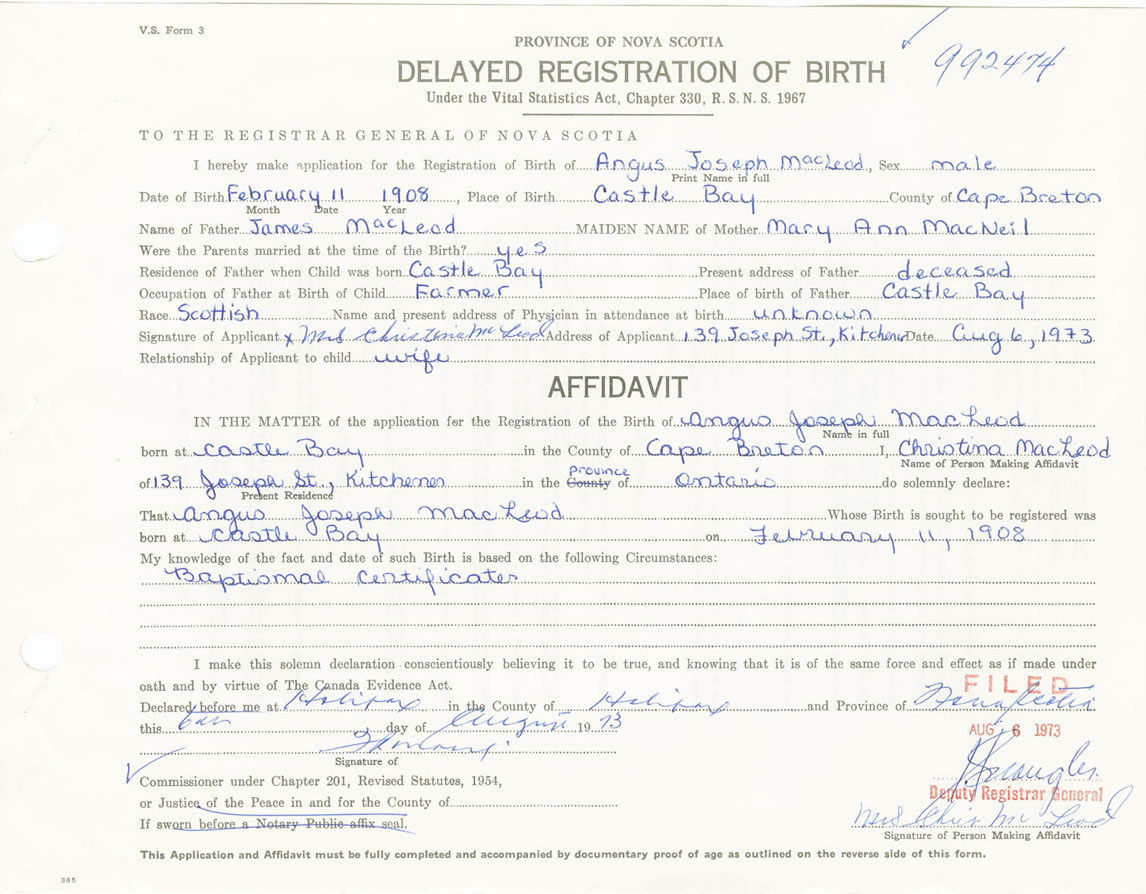 V.S. Form 3
992474
PROVINCE OF NOVA SCOTIA
DELAYED REGISTRATION OF BIRTH
Under the Vital Statistics Act, Chapter 330, R. S. N. S. 1967
TO THE REGISTRAR GENERAL OF NOVA SCOTIA
I hereby make application for the Registration of Birth of Angus Joseph MacLeod, Sex male
Print Name in full
Date of Birth February 11 1908, Place of Birth Castle Bay County of Cape Breton
Month Date Year
Name of Father James MacLeod MAIDEN NAME of Mother Mary Ann MacNeil
Were the Parents married at the time of the Birth? yes
Residence of Father when Child was born Castle Bay Present address of Father deceased
Occupation of Father at Birth of Child Farmer Place of birth of Father Castle Bay
Race Scottish Name and present address of Physician in attendance at birth unknown
Signature of Applicant x Mrs Christina McLeod Address of Applicant 139 Joseph St., Kitchener Date Aug 6, 1973
Relationship of Applicant to child wife
AFFIDAVIT
IN THE MATTER of the application for the Registration of the Birth of Angus Joseph MacLeod
Name in full
born at Castle Bay in the County of Cape Breton I, Christina MacLeod
Name of Person Making Affidavit
Province
of 139 Joseph St., Kitchener in the County of Ontario do solemnly declare:
Present Residence
That Angus Joseph MacLeod Whose Birth is sought to be registered was
born at Castle Bay on February 11, 1908
My knowledge of the fact and date of such Birth is based on the following Circumstances:
Baptismal Certificates
I make this solemn declaration conscientiously believing it to be true, and knowing that it is of the same force and effect as if made under
oath and by virtue of The Canada Evidence Act.
FILED
Declared before me at Halifax in the County of Halifax and Province of Nova Scotia
this day of August 1973
AUG 6 1973
Signature of
Commissioner under Chapter 201, Revised Statutes, 1954,
Deputy Registrar General
or Justice of the Peace in and for the County of
Mrs Chris McLeod
If sworn before a Notary Public affix seal.
Signature of Person Making Affidavit
This Application and Affidavit must be fully completed and accompanied by documentary proof of age as outlined on the reverse side of this form.
385